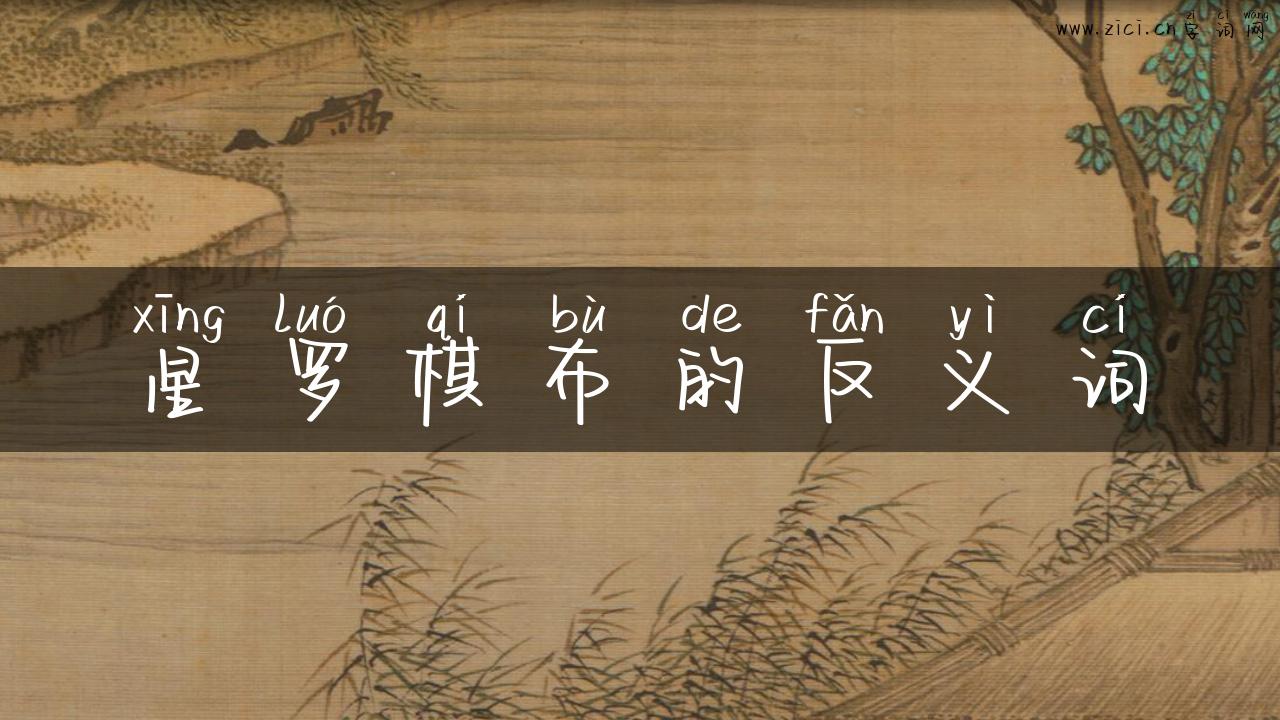 zì cí wǎng
www.zici.cn字词网
xīng luó qí bù de fǎn yì cí
星罗棋布的反义词